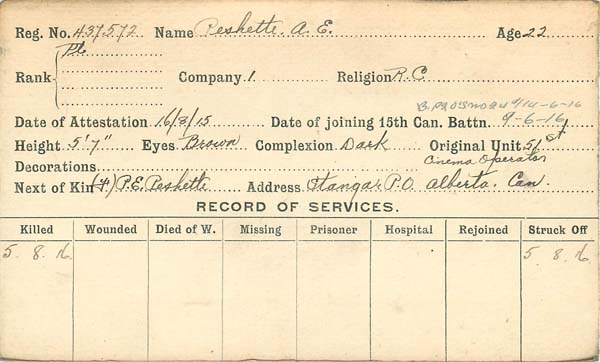 Reg. No. 437572 Name Peshette. A. E. Age 22
Pte.
Rank Company 1 Religion R.C
14-6-16
Date of Attestation 16/8/15 Date of joining 15th Can. Battn. 9-6-16
Height 5' 7" Eyes Brown Complexion Dark Original Unit 51st
Decorations Cinema Operator
Next of Kin (F) P.E. Peshette Address P.O. Alberta. Can.
RECORD OF SERVICES.
Killed Wounded Died of W. Missing Prisoner Hospital Rejoined Struck Off
5. 8. 16. 5. 8. 16